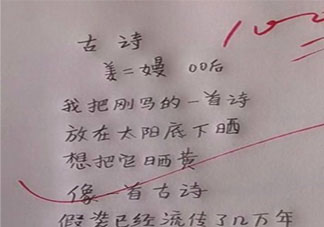 古诗
姜二嫚 00后
我把刚写的一首诗
放在太阳底下晒
想把它晒黄
像一首古诗
假装已经流传了几万年
100